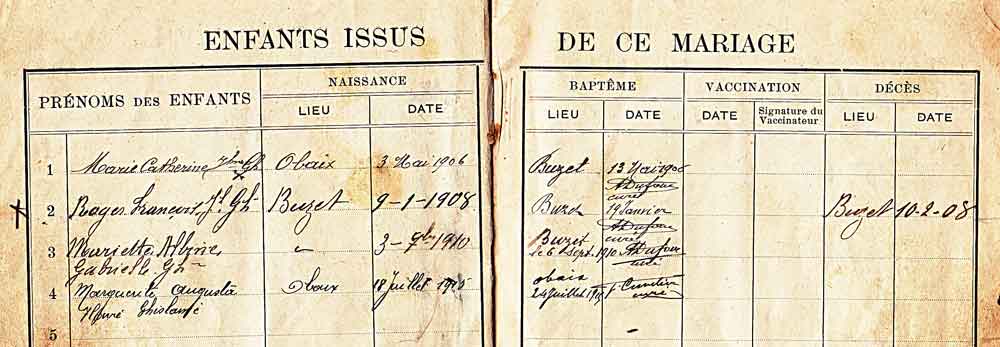 ENFANTS ISSUS DE CE MARIAGE
PRÉNOMS DES ENFANTS
NAISSANCE
LIEU DATE
BAPTÊME
LIEU DATE
VACCINATION
DATE Signature du Vaccinateur
DÉCÈS
LIEU DATE
1 Marie Catherine Gh. Obaix 3 Mai 1906 Buzet 13 Mai 1906
ADufour
curé
2 Roger Francois Gh. Buzet 9-1-1908 Buzet 19 Janvier Buzet 10-2-08
ADufour
curé
3 Mariette Albine Gabrielle Gh. 3- 1910 Buzet
le 6 Sept. 1910 ADufour
curé
4 Marguerite Augusta Obaix 18 Juillet 1915 Obaix
Henri Ghislaine 24 Juillet curé
5